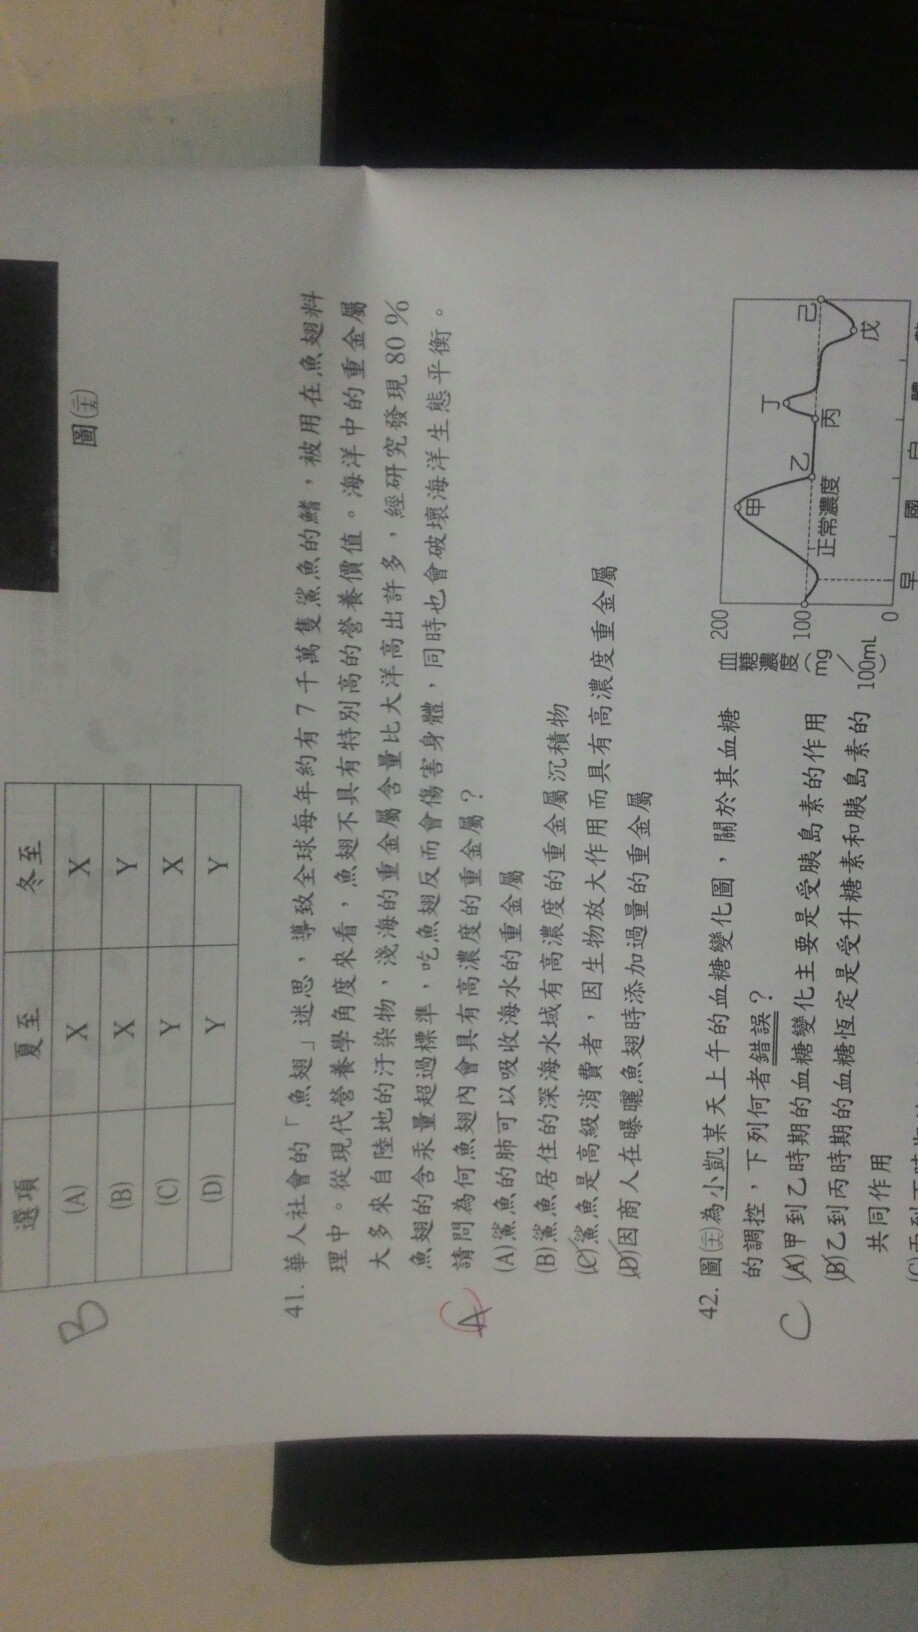 圖(二五)
選項 夏至 冬至
(A) X X
(B) X Y
(C) Y X
(D) Y Y
B
41. 華人社會的「魚翅」迷思，導致全球每年約有 7 千萬隻鯊魚的鰭，被用在魚翅料
理中。從現代營養學角度來看，魚翅不具有特別高的營養價值。海洋中的重金屬
大多來自陸地的汙染物，淺海的重金屬含量比大洋高出許多，經研究發現 80 %
魚翅的含汞量超過標準，吃魚翅反而會傷害身體，同時也會破壞海洋生態平衡。
請問為何魚翅內會具有高濃度的重金屬？
(A) 鯊魚的肺可以吸收海水的重金屬
(B) 鯊魚居住的深海水域有高濃度的重金屬沉積物
(C) 鯊魚是高級消費者，因生物放大作用而具有高濃度重金屬
(D) 因商人在曝曬魚翅時添加過量的重金屬
42. 圖為小凱某天上午的血糖變化圖，關於其血糖
的調控，下列何者錯誤？
C
(A) 甲到乙時期的血糖變化主要是受胰島素的作用
(B) 乙到丙時期的血糖恆定是受升糖素和胰島素的
共同作用
血糖濃度(mg/100mL)
200
100
0
甲
乙
丙
丁
戊
己
正常濃度
早
國